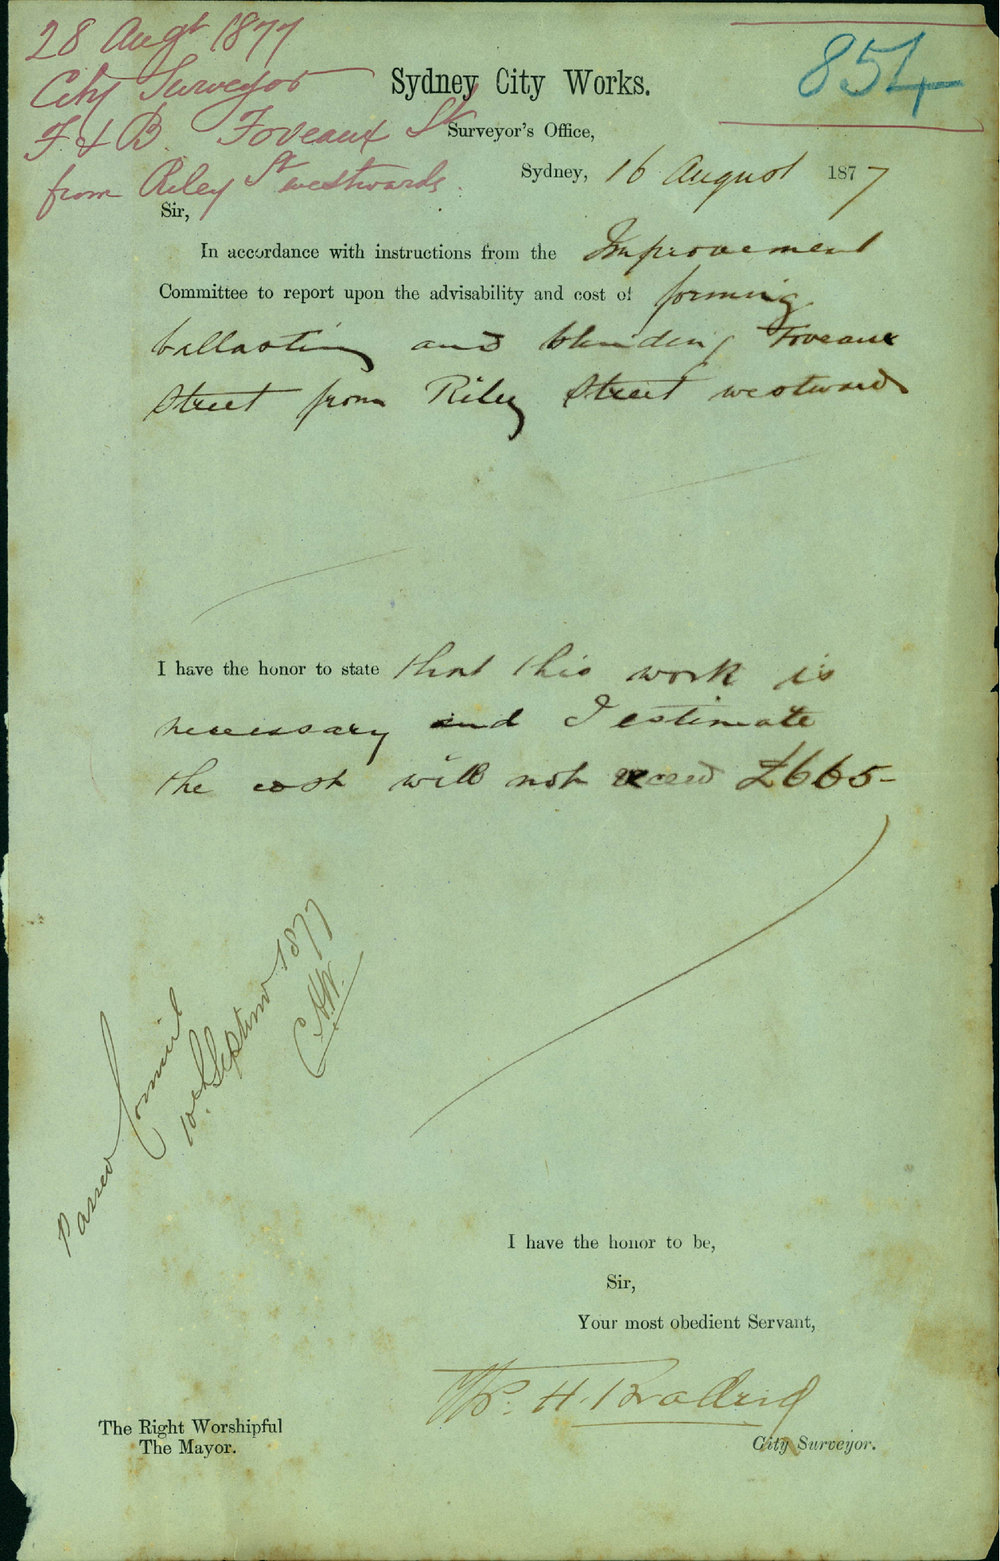 28 Augt 1877
City Surveyor
F & B Foveaux St
from Riley St westwards.
854
Sydney City Works.
Surveyor's Office,
Sydney, 16 August 1877
Sir,
In accordance with instructions from the Improvement
Committee to report upon the advisability and cost of forming
ballasting and blinding Foveaux
Street from Riley Street westward
I have the honor to state that this work is
necessary and I estimate
the cost will not exceed £665-
Passed Council
10th Septemr 1877
I have the honor to be,
Sir,
Your most obedient Servant,
H.
City Surveyor.
The Right Worshipful
The Mayor.